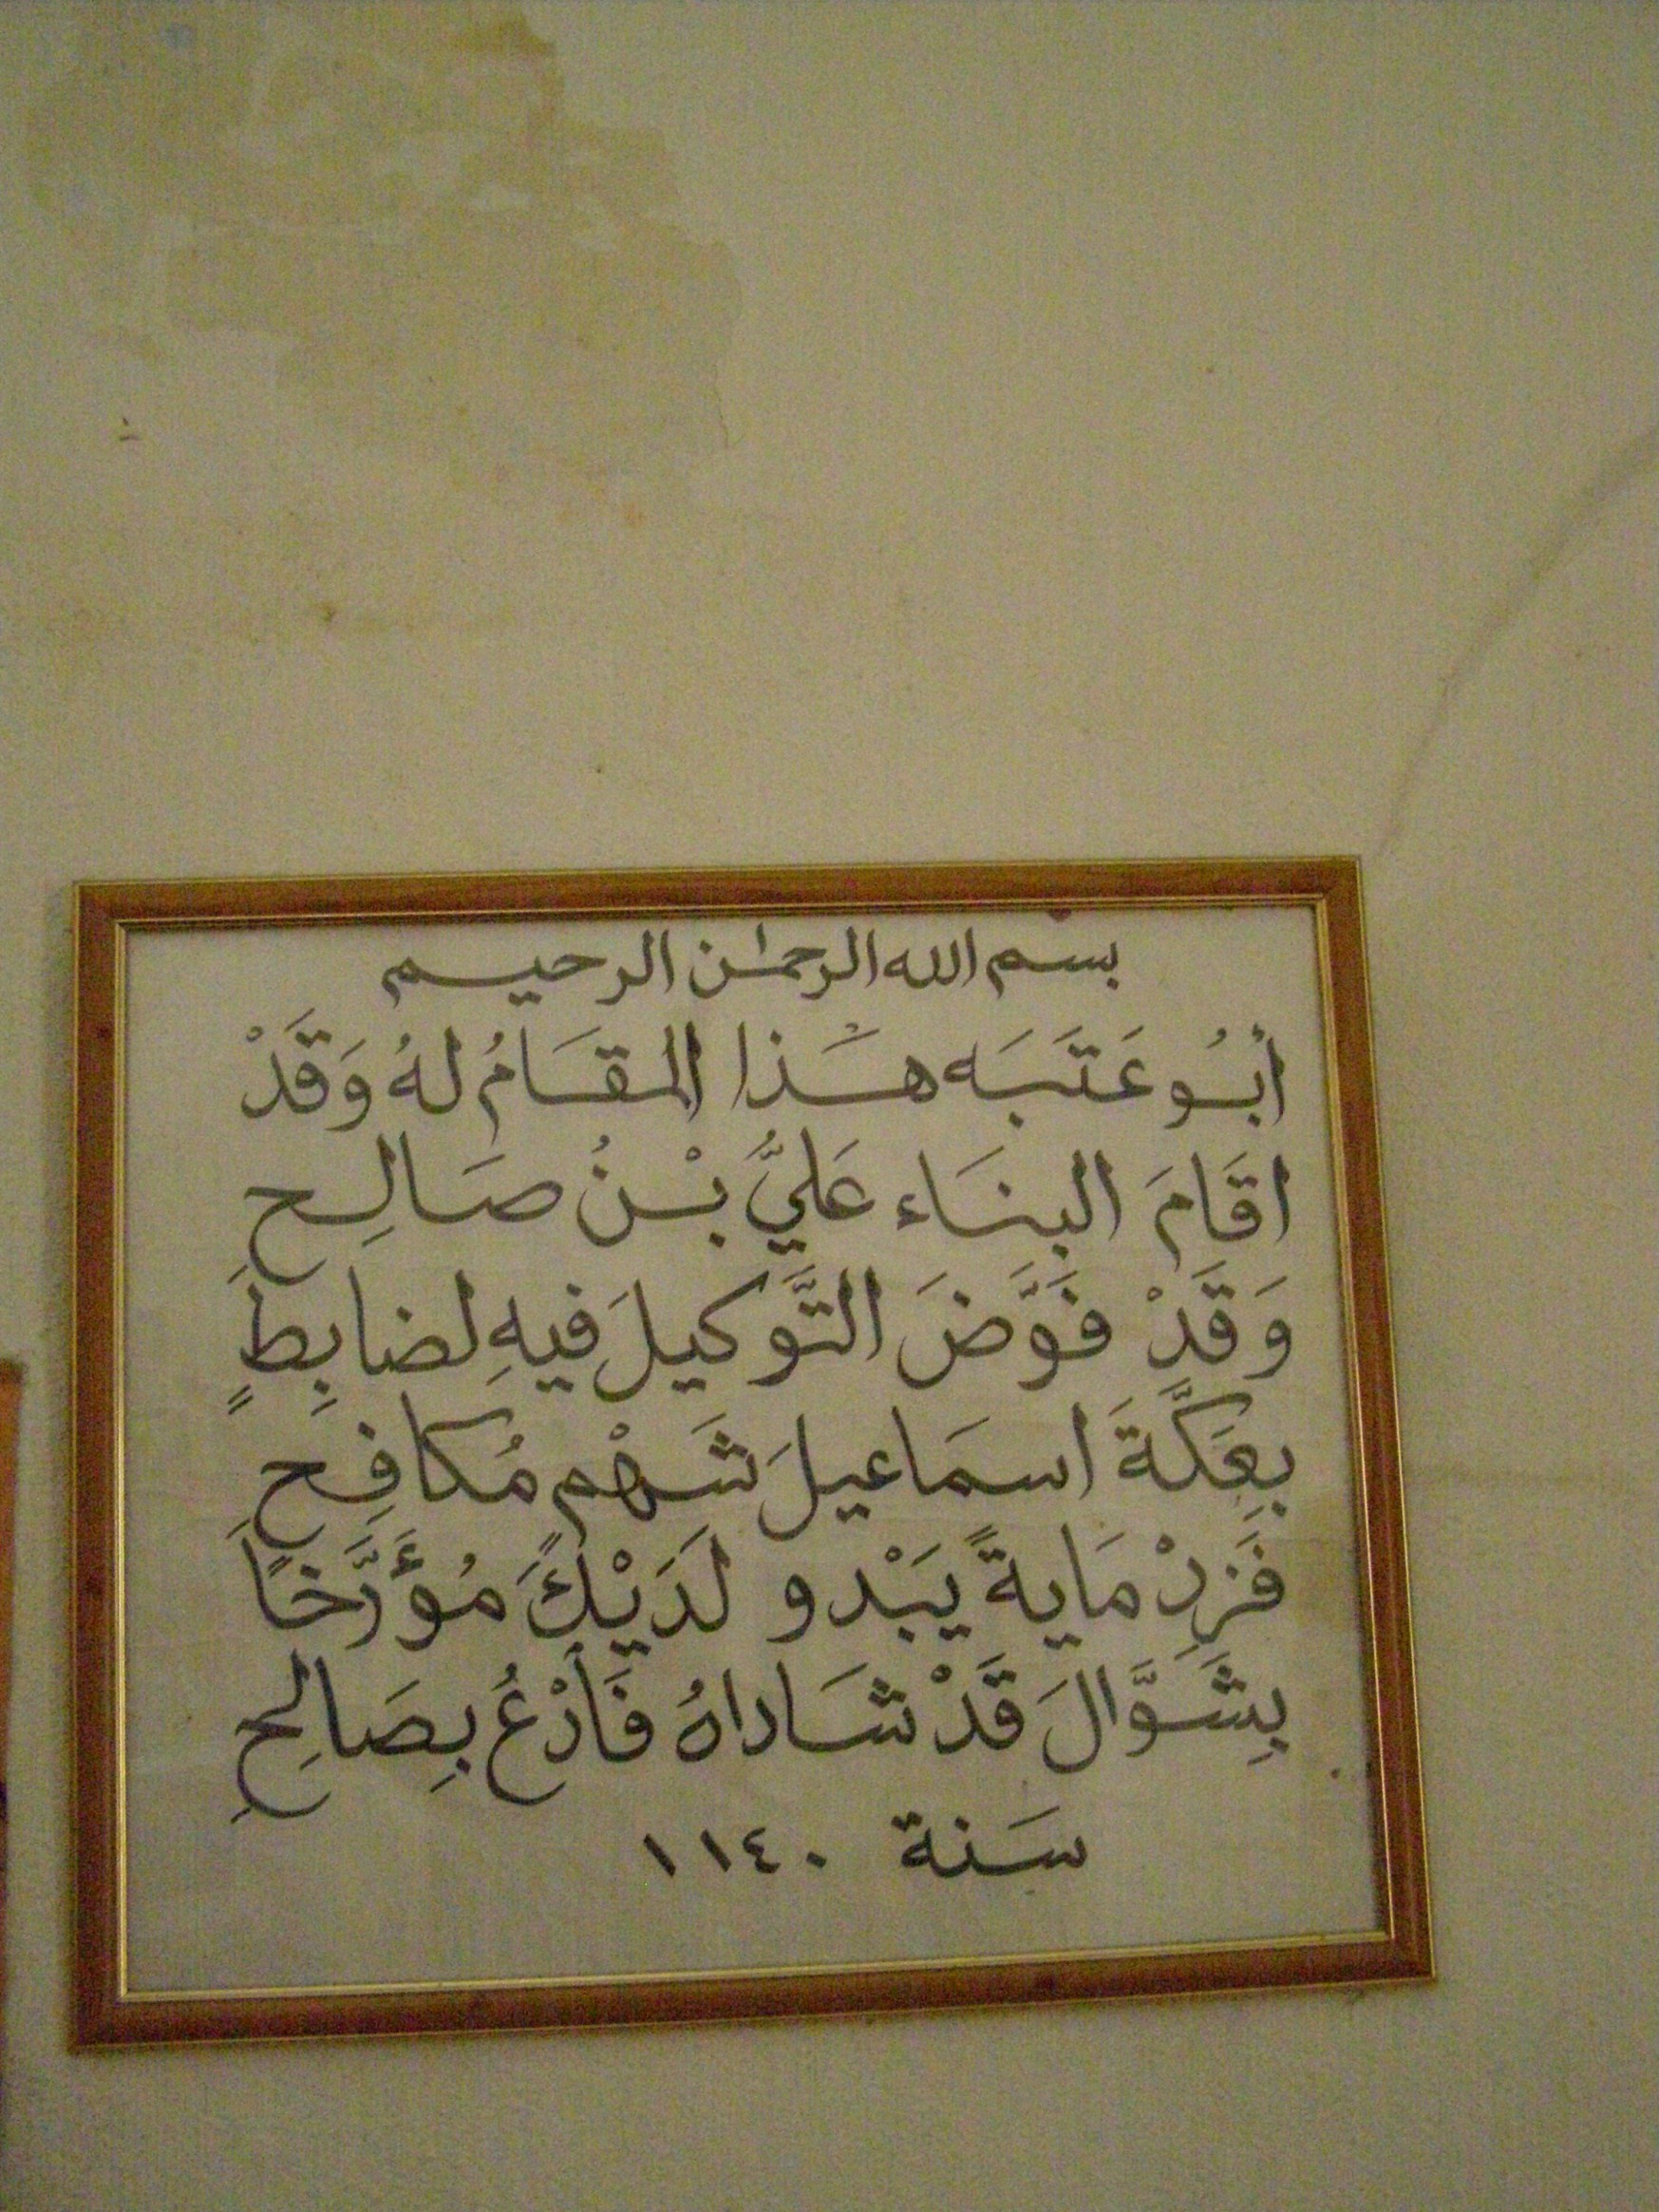 بسم الله الرحمٰن الرحيم
أبُو عَتَبَه هَذا المقَامُ لهُ وَقَدْ
اقَامَ البنَاء عَليُّ بْنُ صَالِحِ
وَقَدْ فَوَّضَ التَّوكيلَ فيهِ لضابِطٍ
بِعَكَّةَ اسمَاعيلَ شَهْمٍ مُكافِحِ
فَزِدْ مَايةً يَبْدو لَدَيْكَ مُؤَرَّخًا
بِشَوَّالَ قَدْ شَاداهُ فَأدْعُ بِصَالِحِ
سَنة ١١٤٠